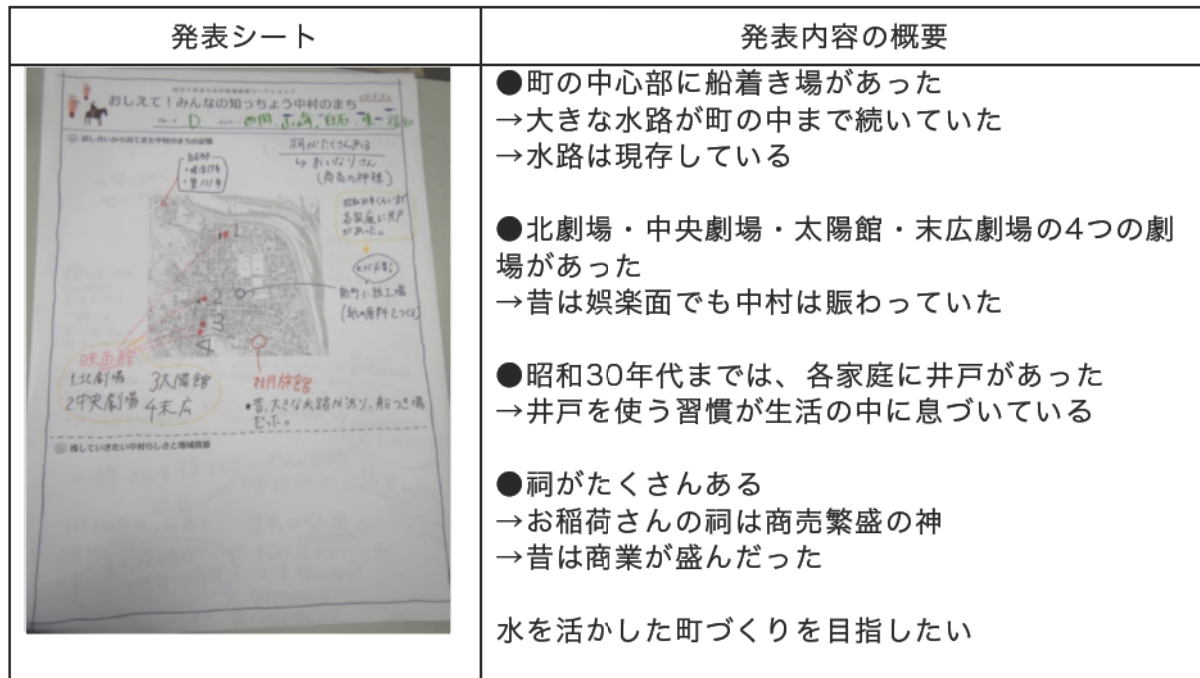 発表シート
発表内容の概要
おしえて！みんなの知っちょう中村のまち
D
話し合いから出てきた中村のまちの記憶
祠がたくさんある
↳おいなりさん
(商売の神様)
各家庭に井戸
があった。
(紙の原料をつくる)
映画館
1.北劇場
2.中央劇場
3太陽館
4末広
1
2
3
4
旅館
•昔、大きな水路があり、船つき場
だった。
残していきたい中村らしさと地域資源
●町の中心部に船着き場があった
→大きな水路が町の中まで続いていた
→水路は現存している
●北劇場・中央劇場・太陽館・末広劇場の4つの劇
場があった
→昔は娯楽面でも中村は賑わっていた
●昭和30年代までは、各家庭に井戸があった
→井戸を使う習慣が生活の中に息づいている
●祠がたくさんある
→お稲荷さんの祠は商売繁盛の神
→昔は商業が盛んだった
水を活かした町づくりを目指したい